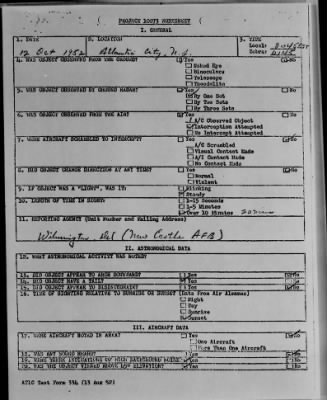 PROJECT 10073 WORKSHEET
I. GENERAL
1. DATE
2. LOCATION
3. TIME
12 Oct 1952
Atlantic City N.J.
Local:
Zebra:
4. WAS OBJECT OBSERVED FROM THE GROUND?
Yes
No
Naked Eye
Binoculars
Telescope
Theodolite
5. WAS OBJECT OBSERVED BY GROUND RADAR?
Yes
No
By One Set
By Two Sets
By Three Sets
6. WAS OBJECT OBSERVED FROM THE AIR?
Yes
No
A/C Observed Object
Interception Attempted
No Intercept Attempted
7. WERE AIRCRAFT SCRAMBLED TO INTERCEPT?
Yes
No
A/C Scrambled
Visual Contact Made
A/I Contact Made
No Contact Made
8. DID OBJECT CHANGE DIRECTION AT ANY TIME?
Yes
No
Normal
Violent
9. IF OBJECT WAS A "LIGHT", WAS IT:
Blinking
Steady
10. LENGTH OF TIME IN SIGHT:
1-15 Seconds
1-5 Minutes
Over 10 Minutes
11. REPORTING AGENCY (Unit Number and Mailing Address)
Wilmington, Del (New Castle AFB)
II. ASTRONOMICAL DATA
12. WHAT ASTRONOMICAL ACTIVITY WAS NOTED?
13. DID OBJECT APPEAR TO ARCH DOWNWARD?
Yes
No
14. DID OBJECT HAVE A TAIL?
Yes
No
15. DID OBJECT APPEAR TO DISINTEGRATE?
Yes
No
16. TIME OF SIGHTING RELATIVE TO SUNRISE OR SUNSET (Data From Air Almanac)
Night
Day
Sunrise
Sunset
III. AIRCRAFT DATA
17. WERE AIRCRAFT NOTED IN AREA?
Yes
No
One Aircraft
More Than One Aircraft
18. WAS ANY SOUND HEARD?
Yes
No
19. WERE THERE INDICATIONS OF HIGH BACKGROUND NOISE?
Yes
No
20. WAS THE OBJECT VIEWED ABOVE 45° ELEVATION?
Yes
No
ATIC Test Form 334 (13 Aug 52)